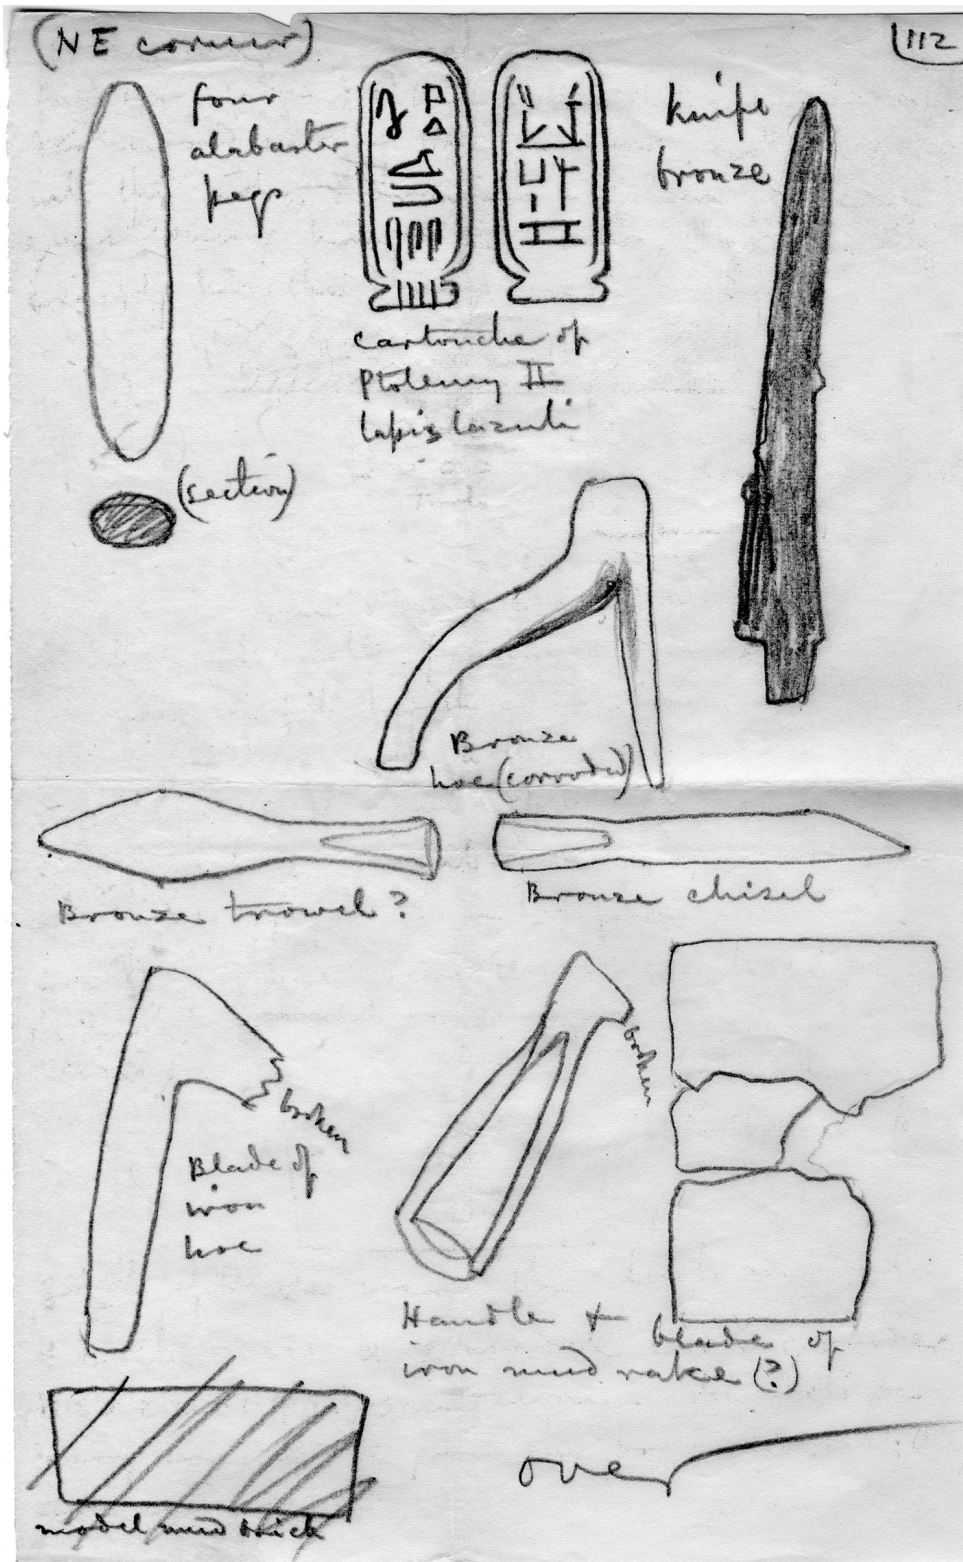 (NE corner)
112
four
alabaster
pegs
(section)
cartouche of
Ptolemy II
lapis lazuli
knife
bronze
Bronze
hoe (corroded)
Bronze trowel?
Bronze chisel
broken
Blade of
iron
hoe
broken
Handle + blade of
iron mud rake (?)
model mud brick
over